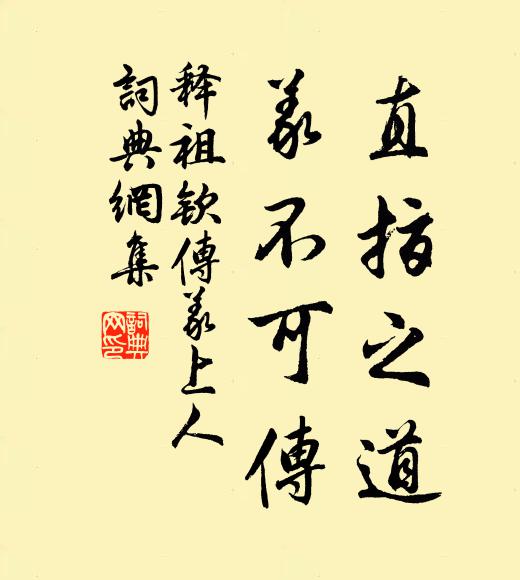 直指之道
义不可傳
释祖欽傳义上人
詞典網集
詞典
网印